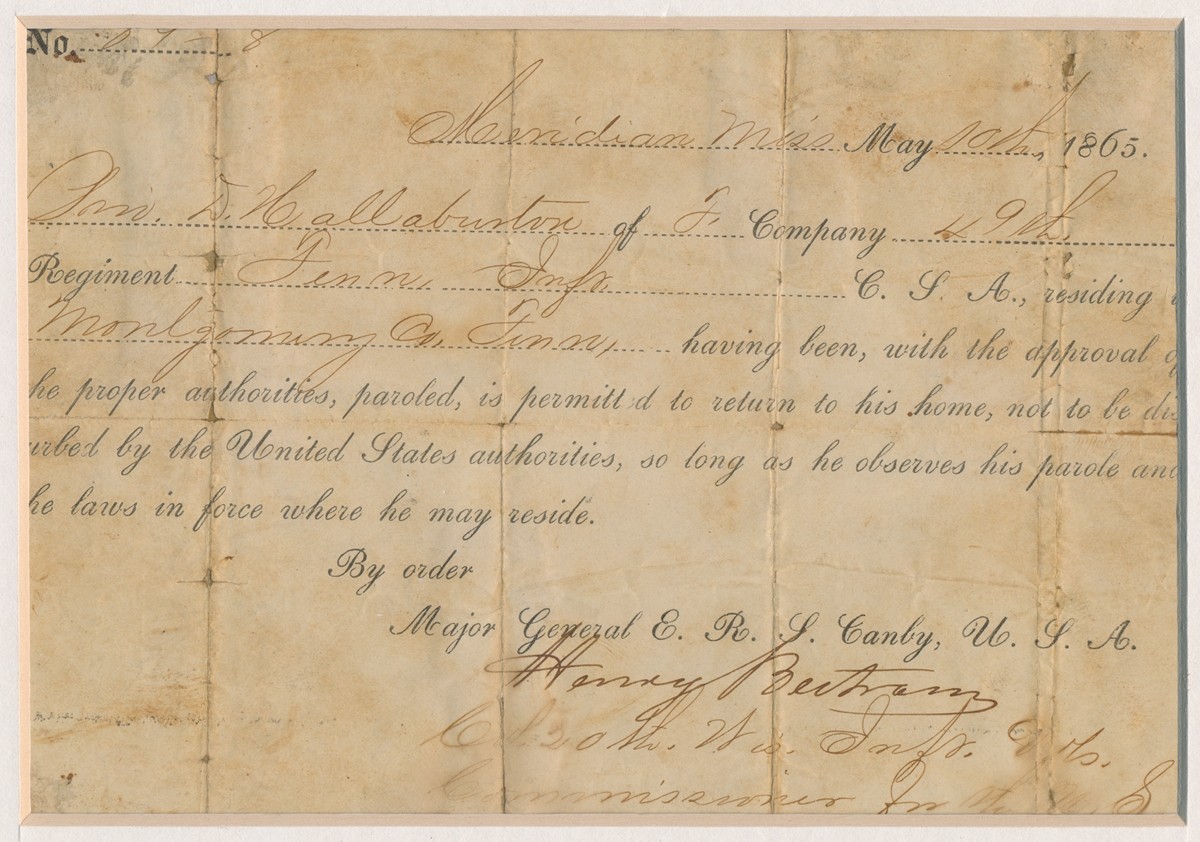 No.
Meridian Miss May 10th, 1865.
D. Hallaburton of F. Company 49th.
Regiment Tenn. Infr. C. S. A., residing
Montgomery Co. Tenn, having been, with the approval
he proper authorities, paroled, is permitt d to return to his home, not to be dis
urbed by the United States authorities, so long as he observes his parole and
he laws in force where he may reside.
By order
Major General E. R. S. Canby, U. S. A.
Henry Bertram
Col. 20th. Wis. Infr. Vols.
Commissioner